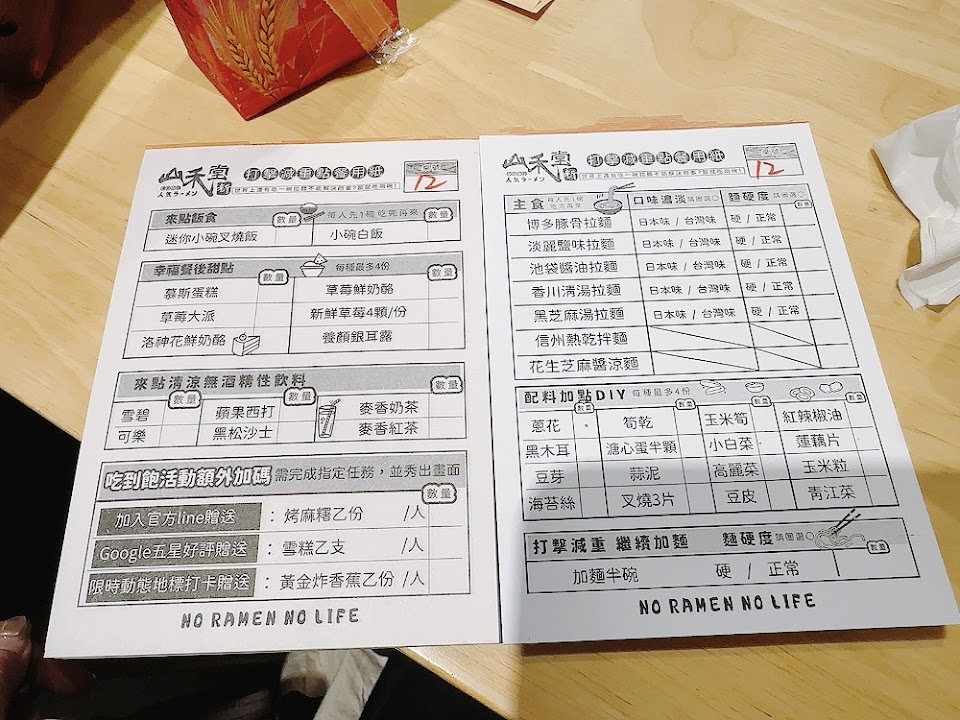 山禾堂 打擊減重點餐用紙
人気ラーメン
12
來點飯食 數量 每人先1碗 吃完再來 數量
迷你小碗叉燒飯 小碗白飯
幸福餐後甜點 數量 每種最多4份 數量
慕斯蛋糕 草莓鮮奶酪
草莓大派 新鮮草莓4顆/份
洛神花鮮奶酪 養顏銀耳露
來點清涼無酒精性飲料 數量 數量 數量
雪碧 蘋果西打 麥香奶茶
可樂 黑松沙士 麥香紅茶
吃到飽活動額外加碼 需完成指定任務，並秀出畫面
數量
加入官方line贈送 ：烤麻糬乙份 /人
Google五星好評贈送 ：雪糕乙支 /人
限時動態地標打卡贈送 ：黃金炸香蕉乙份 /人
NO RAMEN NO LIFE
山禾堂 打擊減重點餐用紙
人気ラーメン
12
主食 每人先1碗 吃完再來 口味濃淡 請圈選 麵硬度 請圈選 數量
博多豚骨拉麵 日本味 / 台灣味 硬 / 正常
淡麗鹽味拉麵 日本味 / 台灣味 硬 / 正常
池袋醬油拉麵 日本味 / 台灣味 硬 / 正常
香川清湯拉麵 日本味 / 台灣味 硬 / 正常
黑芝麻湯拉麵 日本味 / 台灣味 硬 / 正常
信州熱乾拌麵
花生芝麻醬涼麵
配料加點DIY 每種最多4份
數量 數量 數量 數量
蔥花 筍乾 玉米筍 紅辣椒油
黑木耳 溏心蛋半顆 小白菜 蓮藕片
豆芽 蒜泥 高麗菜 玉米粒
海苔絲 叉燒3片 豆皮 青江菜
打擊減重 繼續加麵 麵硬度 請圈選 數量
加麵半碗 硬 / 正常
NO RAMEN NO LIFE